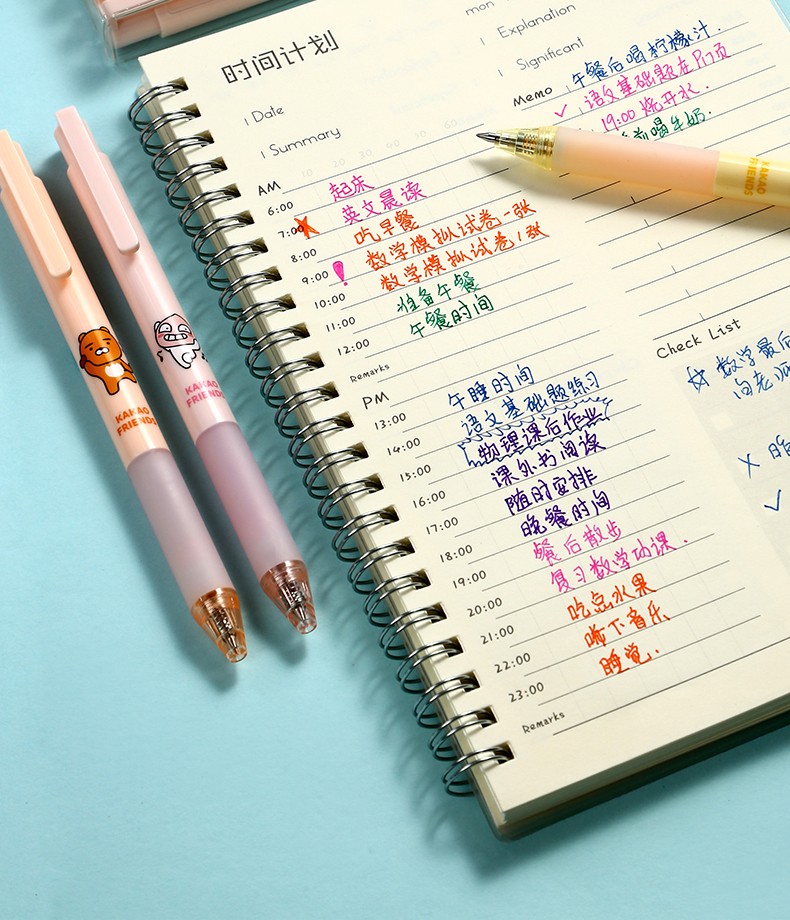 时间计划
Date
Summary
10 20 30 40 50 60
AM
6:00 起床
7:00 英文晨读
8:00 吃早餐
9:00 数学模拟试卷一张
10:00 数学模拟试卷1张
11:00 准备午餐
12:00 午餐时间
Remarks
PM
13:00 午睡时间
14:00 语文基础题练习
15:00 物理课后作业
16:00 课外书阅读
17:00 随时安排
18:00 晚餐时间
19:00 餐后散步
20:00 复习数学功课.
21:00 吃点水果
22:00 听下音乐
23:00 睡觉.
Remarks
mon
Explanation
Significant
Memo 午餐后喝柠檬汁.
✓ 语文基础题在P17页
19:00 烧开水.
前喝牛奶.
Check List
☆ 数学最后
向老师
X 昨
✓
KAKAO
FRIENDS
KAKAO
FRIENDS
KAKAO
FRIENDS